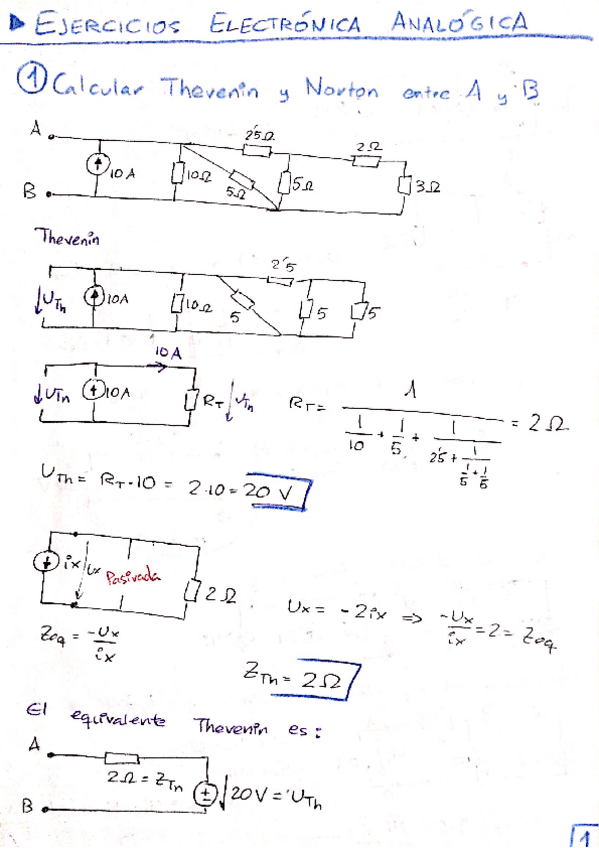 ▶ EJERCICIOS ELECTRÓNICA ANALÓGICA
① Calcular Thevenin y Norton entre A y B
A
2'5Ω
2Ω
10A
10Ω
5Ω
5Ω
3Ω
B
Thevenin
2'5
UTh
10A
10Ω
5
5
5
10A
UTh
10A
RT
UTh
RT = 1 / (1/10 + 1/5 + 1/(2'5 + 1/(1/5 + 1/5))) = 2Ω
UTh = RT·10 = 2·10 = 20 V
ix
Ux
Pasivada
2Ω
Ux = -2ix ⇒ -Ux/ix = 2 = Zeq
Zeq = -Ux/ix
ZTh = 2Ω
El equivalente Thevenin es:
A
2Ω = ZTh
20V = UTh
B
1